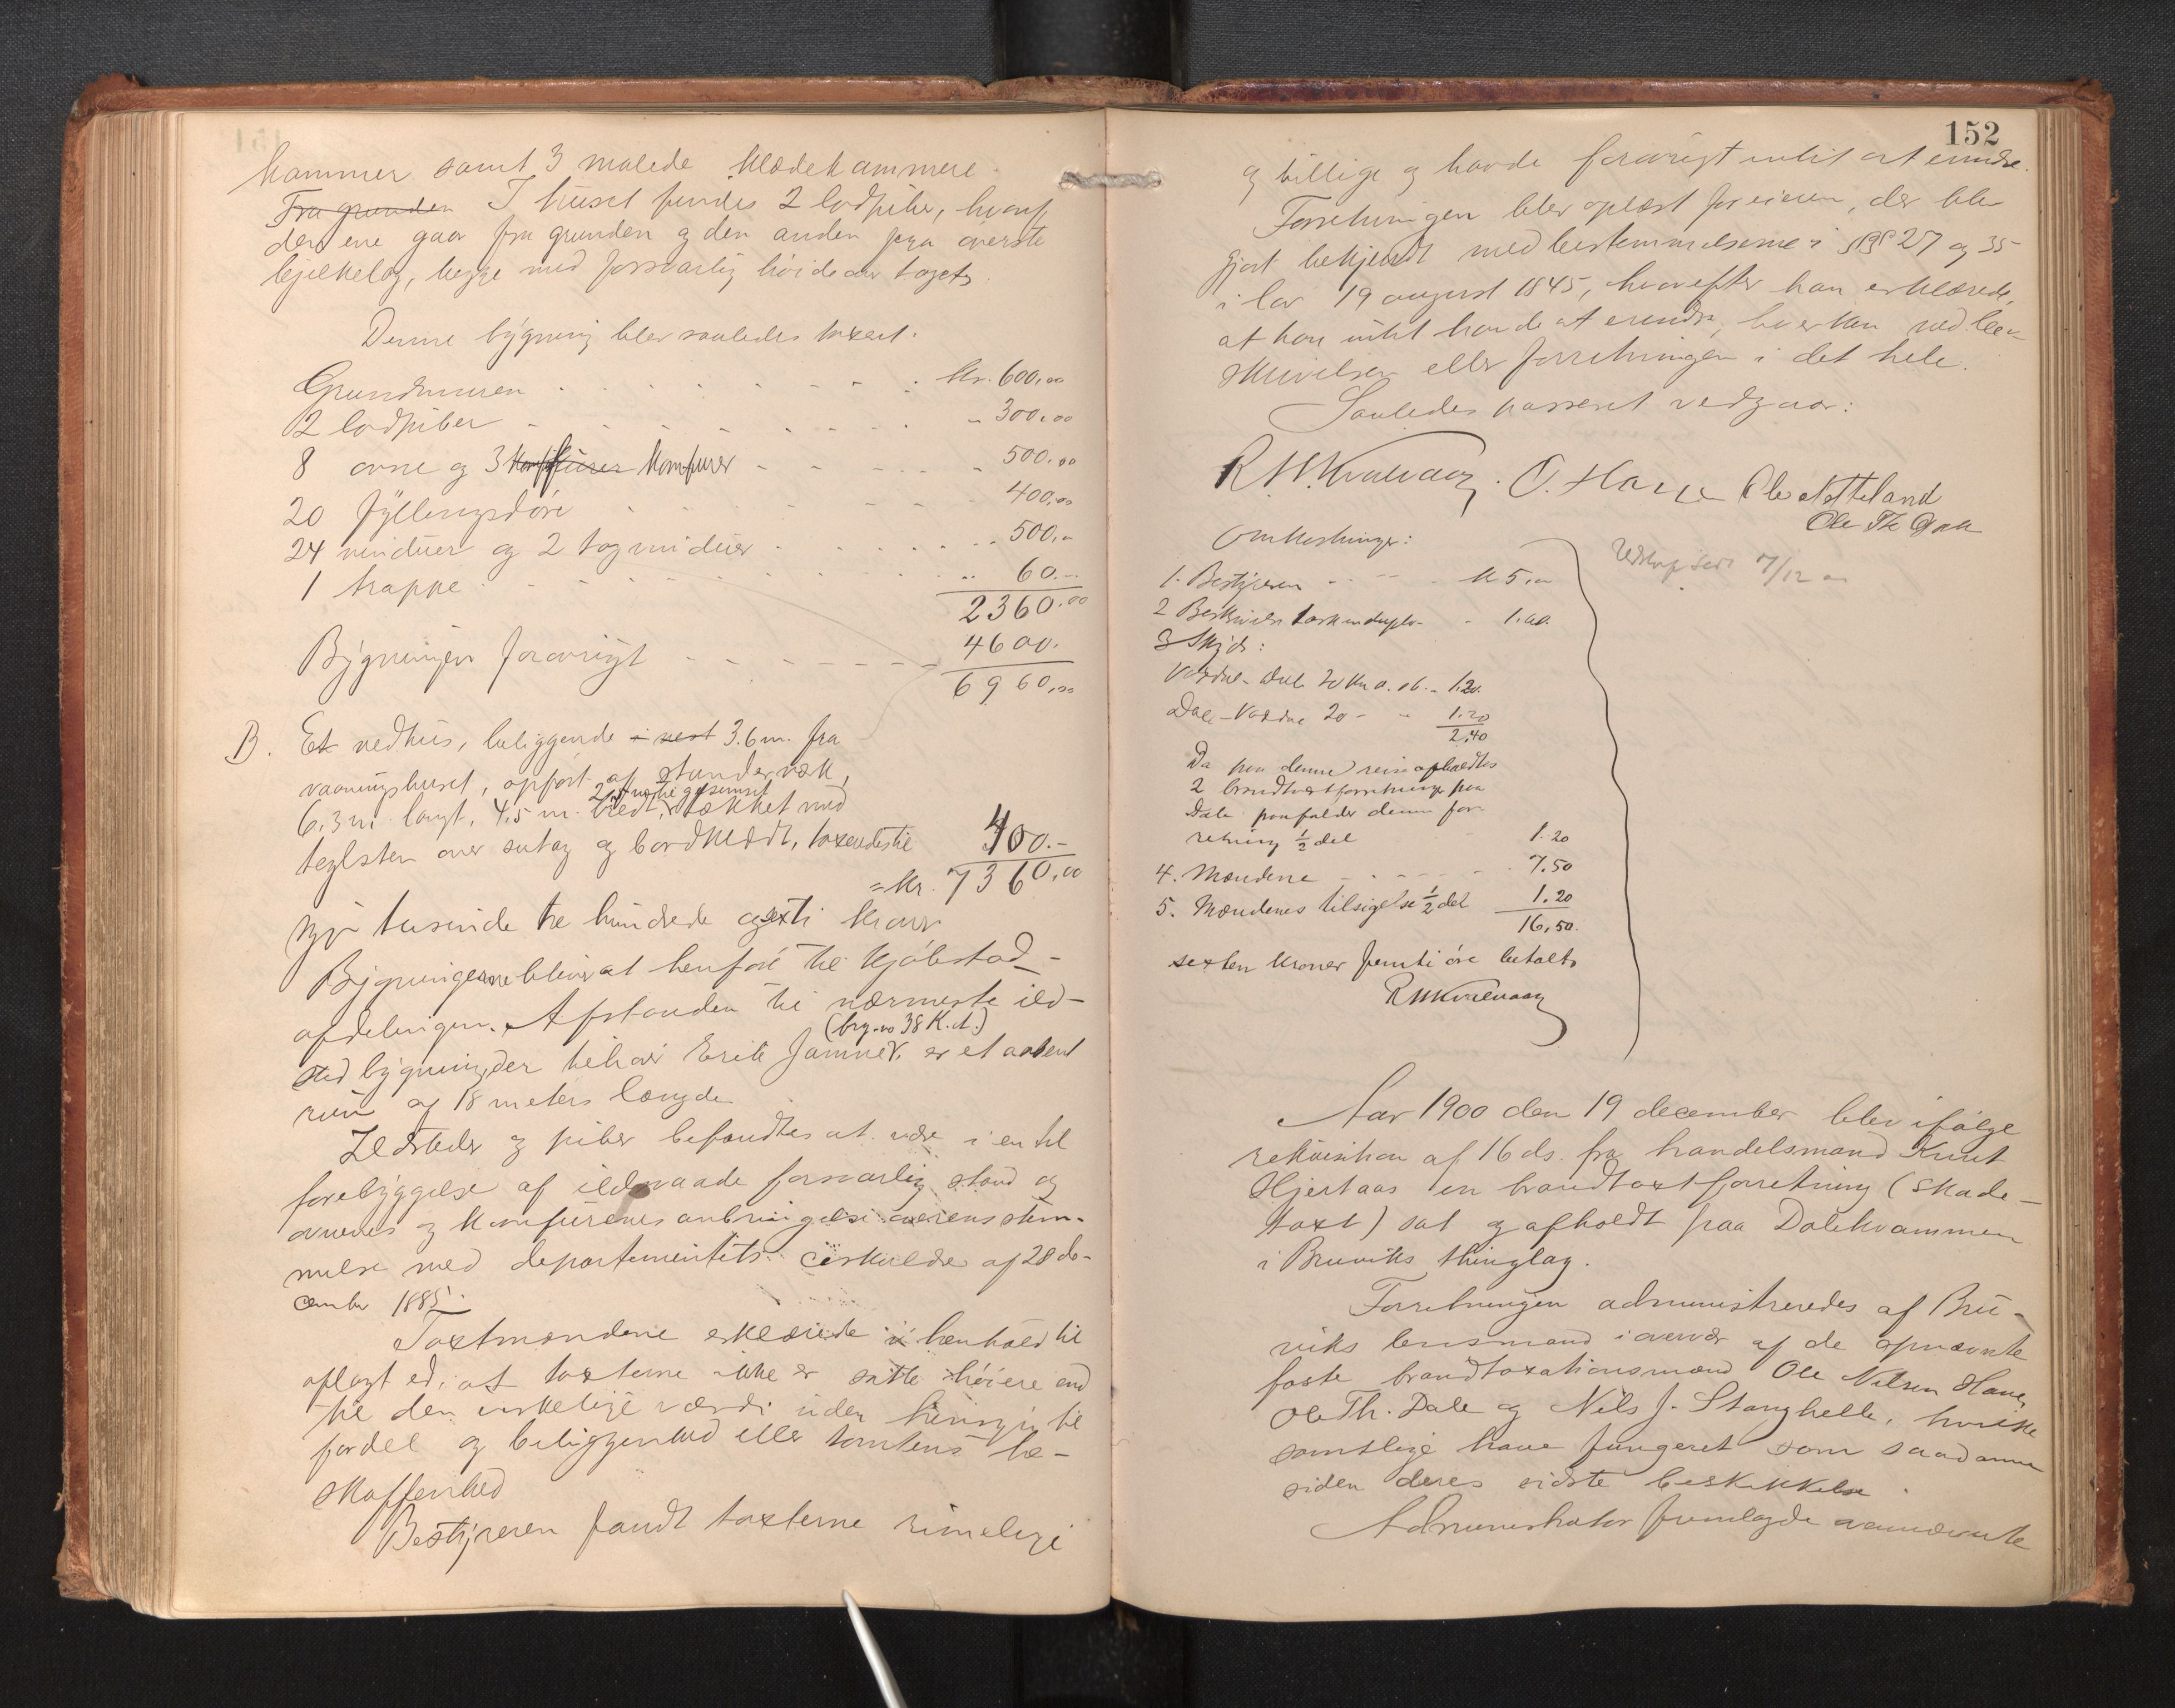 kammer samt 3 malede klædekammere.
Fra grunden I huset findes 2 lodpiber, hvoraf
den ene gaar fra grunden og den anden fra øverste
bjelkelag, begge med forsvarlig høide over taget.
Denne bygning blev saaledes taxert:
Grundmuren - - - - - - kr. 600,00
2 lodpiber - - - - - - - " 300,00
8 ovne og 3 komfurer komfurer - - - - - 500,00
20 fyllingsdøre - - - - - - 400,00
24 vinduer og 2 tagvinduer - - - - - 500,"
1 trappe - - - - - - - " 60.--
2360.00
Bygningen forøvrigt - - - - - - 4600.
6960,00
B. Et vedhus, beliggende i vest 3.6 m. fra
vaaningshuset, opført af stenderværk,
6.3 m. langt, 4,5 m. bredt, tækket med
teglsten over sutag og bordklædt, taxeredes til 400.-
= kr. 7360,00
syv tusinde tre hundrede og sexti kroner
Bygningerne bliver at henføre til kjøbstad-
afdelingen. Afstanden til nærmeste ild-
(brg.no 38 K.A.)
sted bygning, der tilhører Erik Jamne, er et aabent
rum af 18 meters længde
Ildsteder og piber befandtes at være i en til
forebyggelse af ildsvaade forsvarlig stand og
ovnenes og komfurenes anbringelse overensstem-
melse med departementets cirkulære af 28 de-
cember 1885.
Taxtmændene erklærede i henhold til
aflagt ed, at taxterne ikke er satte høiere end
til den virkelige værdi uden hensyn til
fordel og beliggenhed eller tomtens be-
skaffenhed
Bestyreren fandt taxterne rimelige
152
og billige og havde forøvrigt intet at erindre.
Forretningen blev oplæst for eieren, der blev
gjort bekjendt med bestemmelserne i §§ 27 og 35
i lov 19 august 1845, hvorefter han erklærede,
at han intet havde at erindre, hverken ved be-
skrivelsen eller forretningen i det hele.
Saaledes passeret vedgaar:
O. Haue Ole Natteland
Ole Th Dale
Omkostninger:
1. Bestyreren - - - - k 5,00
2 Beskrivelse - 1.60.
3 Skyds:
- Dale 20 km a. 06. - 1.20.
Dale - 20 - " 1.20
2,40
Da paa denne reise afholdtes
2 brandtaxtforretninger paa
Dale paafalder denne for-
retning 1/2 del 1.20
4. Mændene - - - - - 7.50
5. Mændenes tilsigelse 1/2 del 1.20
16,50.
sexten kroner femti øre betalt
7/12 00
Aar 1900 den 19 december blev ifølge
rekvisition af 16 ds. fra handelsmand Knut
Hjertaas en brandtaxtforretning (skade-
taxt) sat og afholdt paa Dalekvammen
i Bruviks thinglag.
Forretningen administreredes af Bru-
viks lensmand i overvær af de opnævnte
faste brandtaxationsmænd Ole Nilsen Haue,
Ole Th. Dale og Nils J. Stanghelle, hvilke
samtlige have fungeret som saadanne
siden deres sidste beskikkelse.
Administrator fremlagde ovennævnte